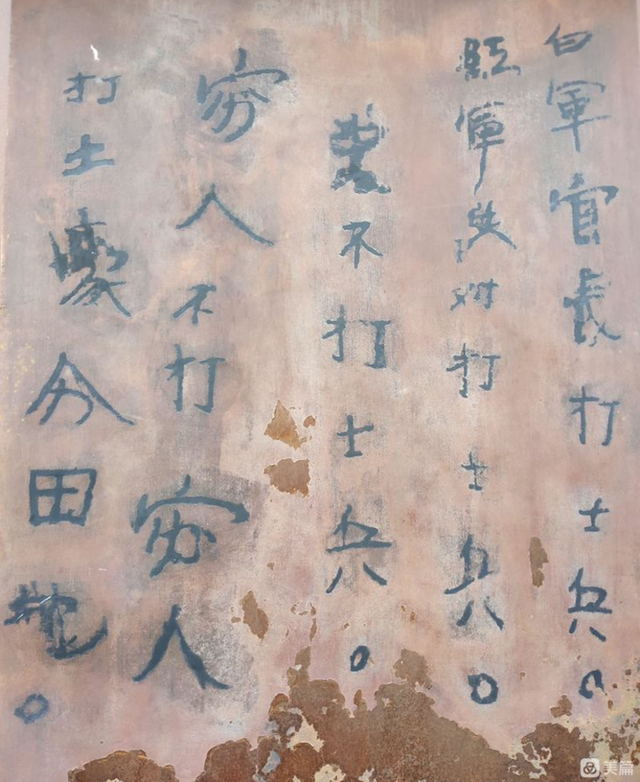 白軍官長打士兵。
紅軍对打士兵。
不打士兵。
穷人不打穷人
打土豪分田地。
美篇